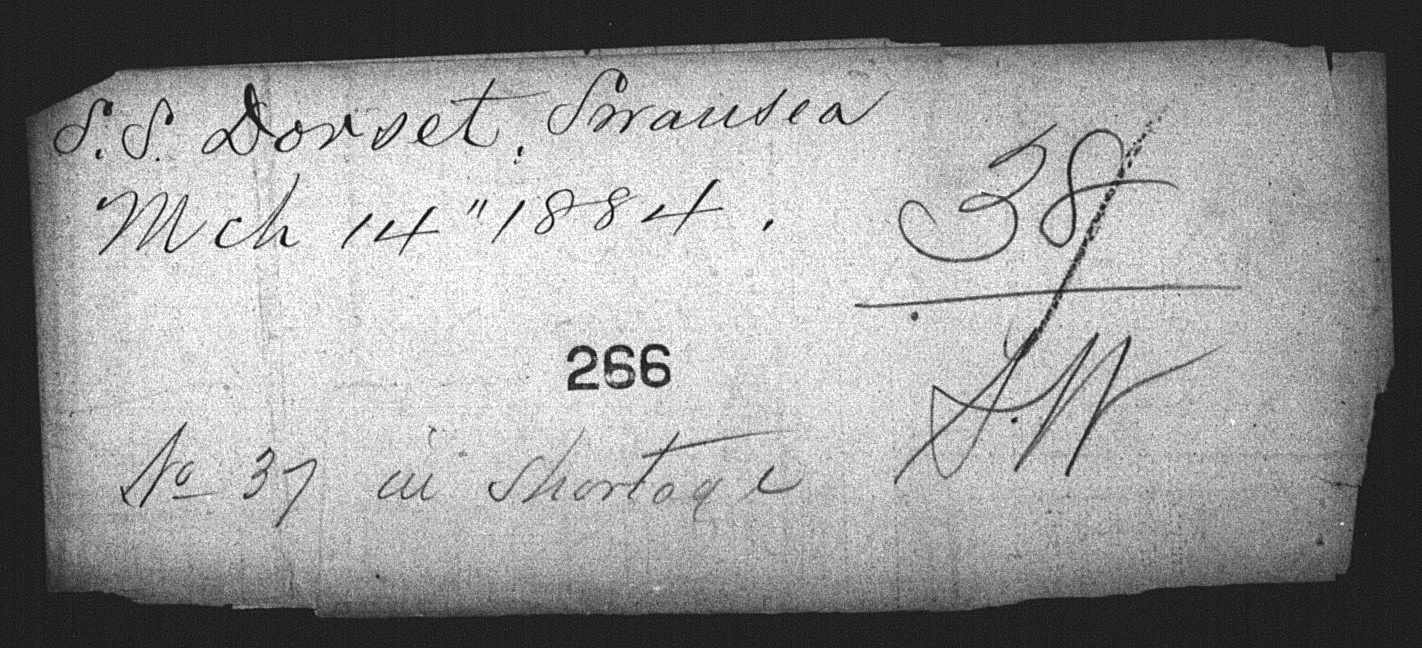 S.S. Dorset, Swansea
Mch 14" 1884.
38
266
S.W
No 37 in Shortage